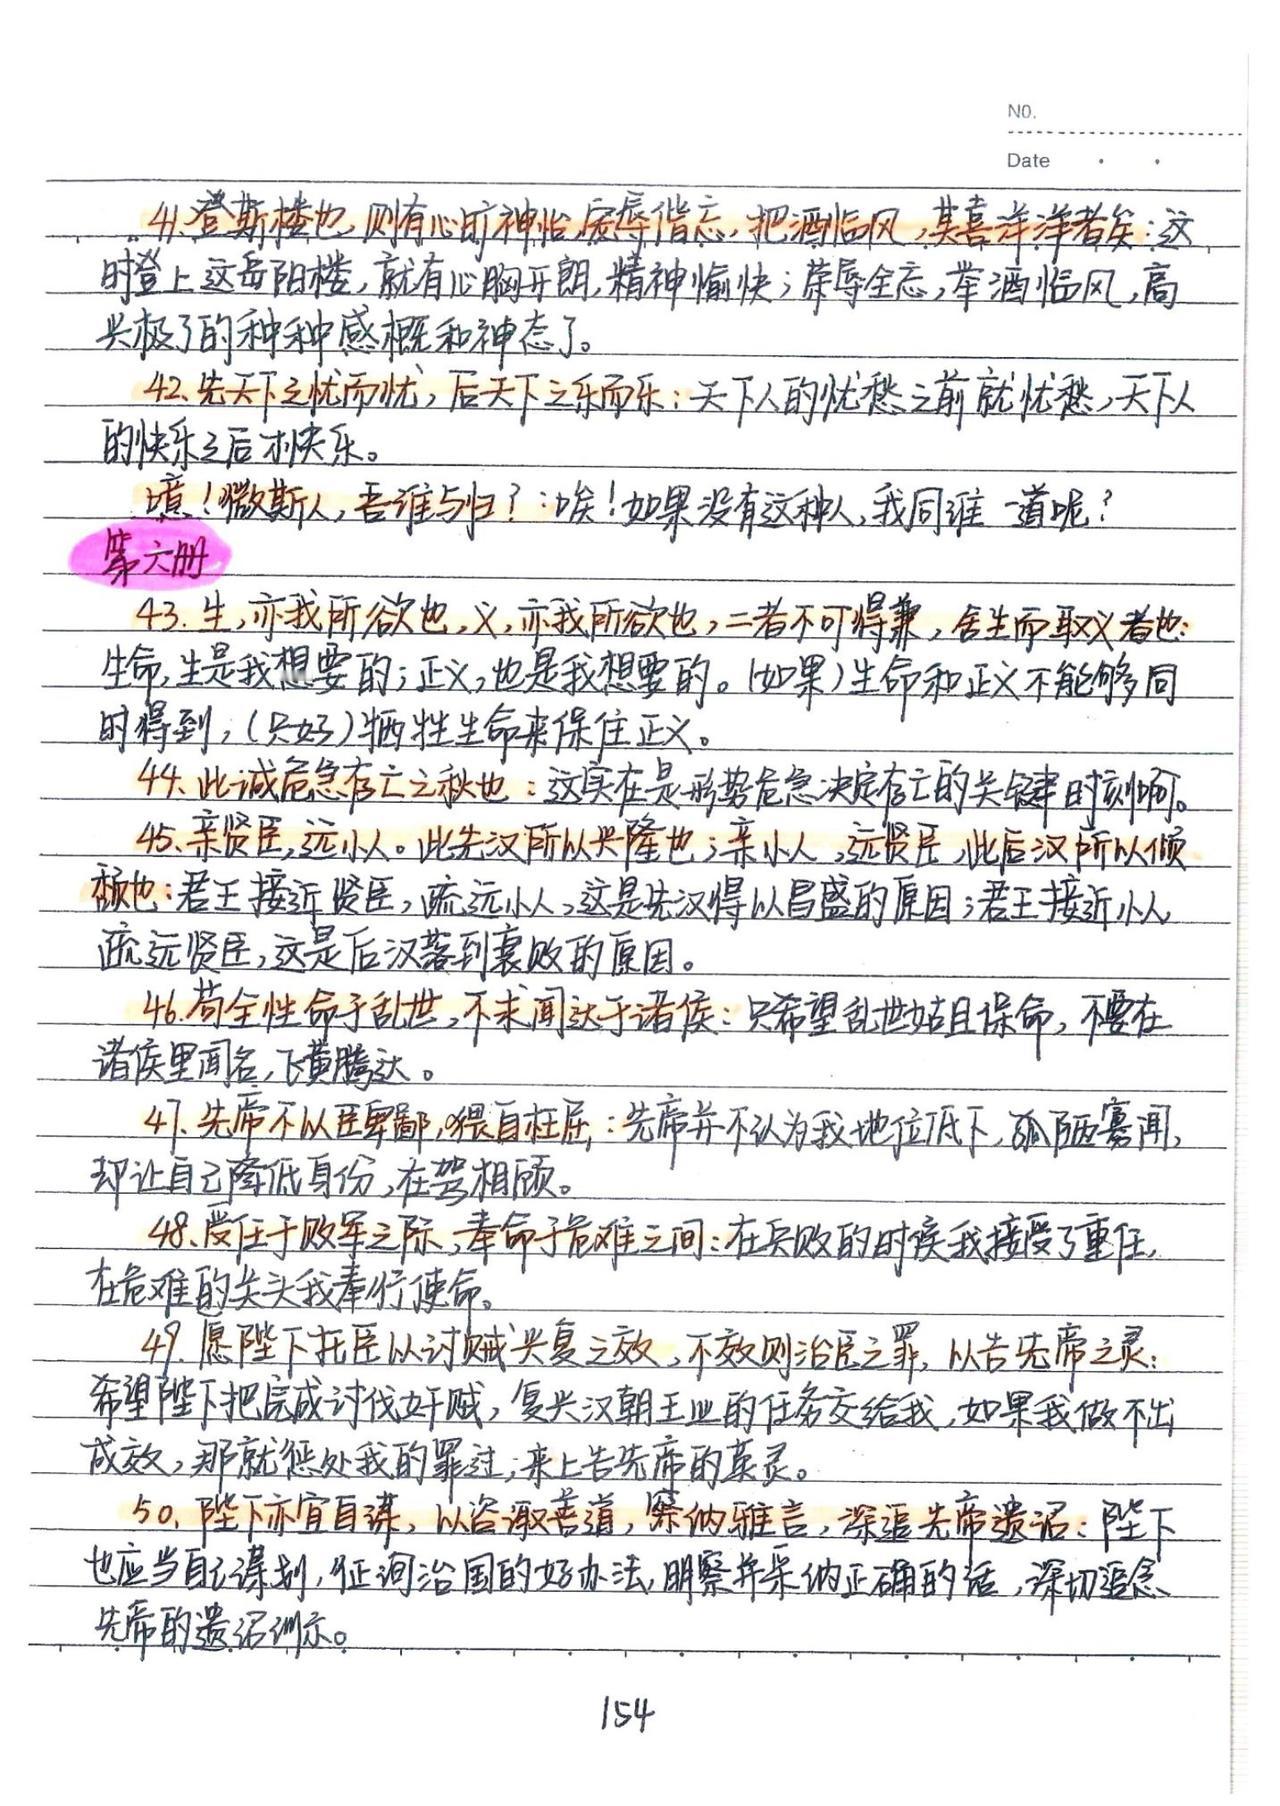 NO.
Date
41.登斯楼也,则有心旷神怡,宠辱偕忘,把酒临风,其喜洋洋者矣:这
时登上这岳阳楼,就有心胸开朗,精神愉快;荣辱全忘,举酒临风,高
兴极了的种种感概和神态了。
42.先天下之忧而忧,后天下之乐而乐:天下人的忧愁之前就忧愁,天下人
的快乐之后才快乐。
噫!微斯人,吾谁与归?:唉!如果没有这种人,我同谁一道呢?
第六册
43.生,亦我所欲也,义,亦我所欲也,二者不可得兼,舍生而取义者也:
生命,生是我想要的;正义,也是我想要的。(如果)生命和正义不能够同
时得到,(只好)牺牲生命来保住正义。
44、此诚危急存亡之秋也:这实在是形势危急决定存亡的关键时刻啊。
45、亲贤臣,远小人。此先汉所以兴隆也;亲小人,远贤臣,此后汉所以倾
颓也:君王接近贤臣,疏远小人,这是先汉得以昌盛的原因;君王接近小人,
疏远贤臣,这是后汉落到衰败的原因。
46.苟全性命于乱世,不求闻达于诸侯:只希望乱世姑且保命,不要在
诸侯里闻名,飞黄腾达。
47.先帝不以臣卑鄙,猥自枉屈:先帝并不认为我地位低下,孤陋寡闻,
却让自己降低身份,在驾相顾。
48.受任于败军之际,奉命于危难之间:在兵败的时候我接受了重任,
在危难的关头我奉行使命。
49.愿陛下托臣以讨贼兴复之效,不效则治臣之罪,以告先帝之灵:
希望陛下把完成讨伐奸贼,复兴汉朝王业的任务交给我,如果我做不出
成效,那就惩处我的罪过,来上告先帝的英灵。
50.陛下亦宜自谋,以咨诹善道,察纳雅言,深追先帝遗诏:陛下
也应当自己谋划,征询治国的好办法,明察并采纳正确的话,深切追念
先帝的遗诏训示。
154